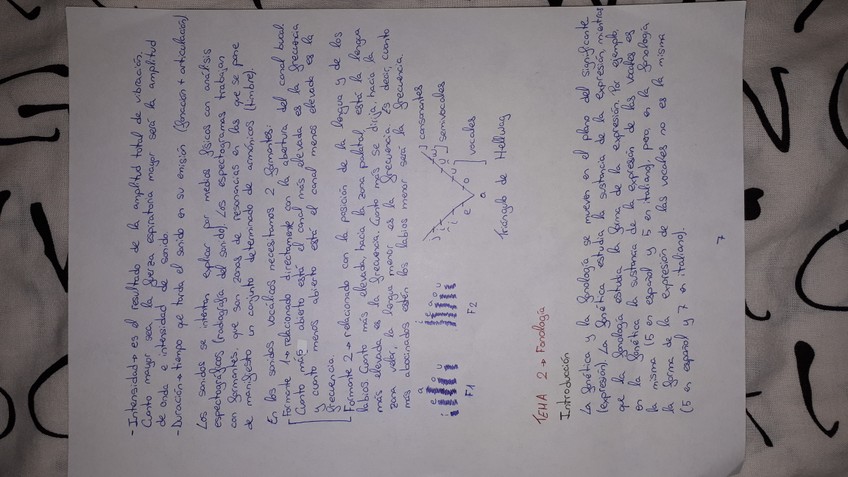 - Intensidad → es el resultado de la amplitud total de vibración.
Cuanto mayor sea la fuerza espiratoria mayor será la amplitud
de onda e intensidad de sonido.
- Duración → tiempo que tarda el sonido en su emisión (fonación + articulación)
Los sonidos se intentan explicar por medios físicos con análisis
espectográficos (radiografía del sonido). Los espectogramas trabajan
con formantes, que son zonas de resonancias en las que se pone
de manifiesto un conjunto determinado de armónicos (timbre).
En los sonidos vocálicos necesitamos 2 formantes:
Formante 1 → relacionado directamente con la abertura del canal bucal
Cuanto más abierto está el canal más elevada es la frecuencia
y cuanto menos abierto está el canal menos elevado es la
frecuencia.
Formante 2 → relacionado con la posición de la lengua y de los
labios. Cuanto más elevada, hacia la zona palatal, está la lengua
más elevada es la frecuencia. Cuanto más se dirija hacia la
zona velar, la lengua menor es la frecuencia. Es decir, cuanto
más abocinados están los labios menor será la frecuencia.
a
e o
i u
F1
i e a o u
F2
consonantes
semivocales
i u
e o
a
vocales
Triángulo de Hellwag
TEMA 2 → Fonología
Introducción
La fonética y la fonología se mueven en el plano del significante
(expresión). La fonética estudia la sustancia de la expresión, mientras
que la fonología estudia la forma de la expresión. Por ejemplo,
en la fonética la sustancia de la expresión de las vocales es
la misma (5 en español y 5 en italiano), pero, en la fonología
la forma de la expresión de las vocales no es la misma
(5 en español y 7 en italiano).
7